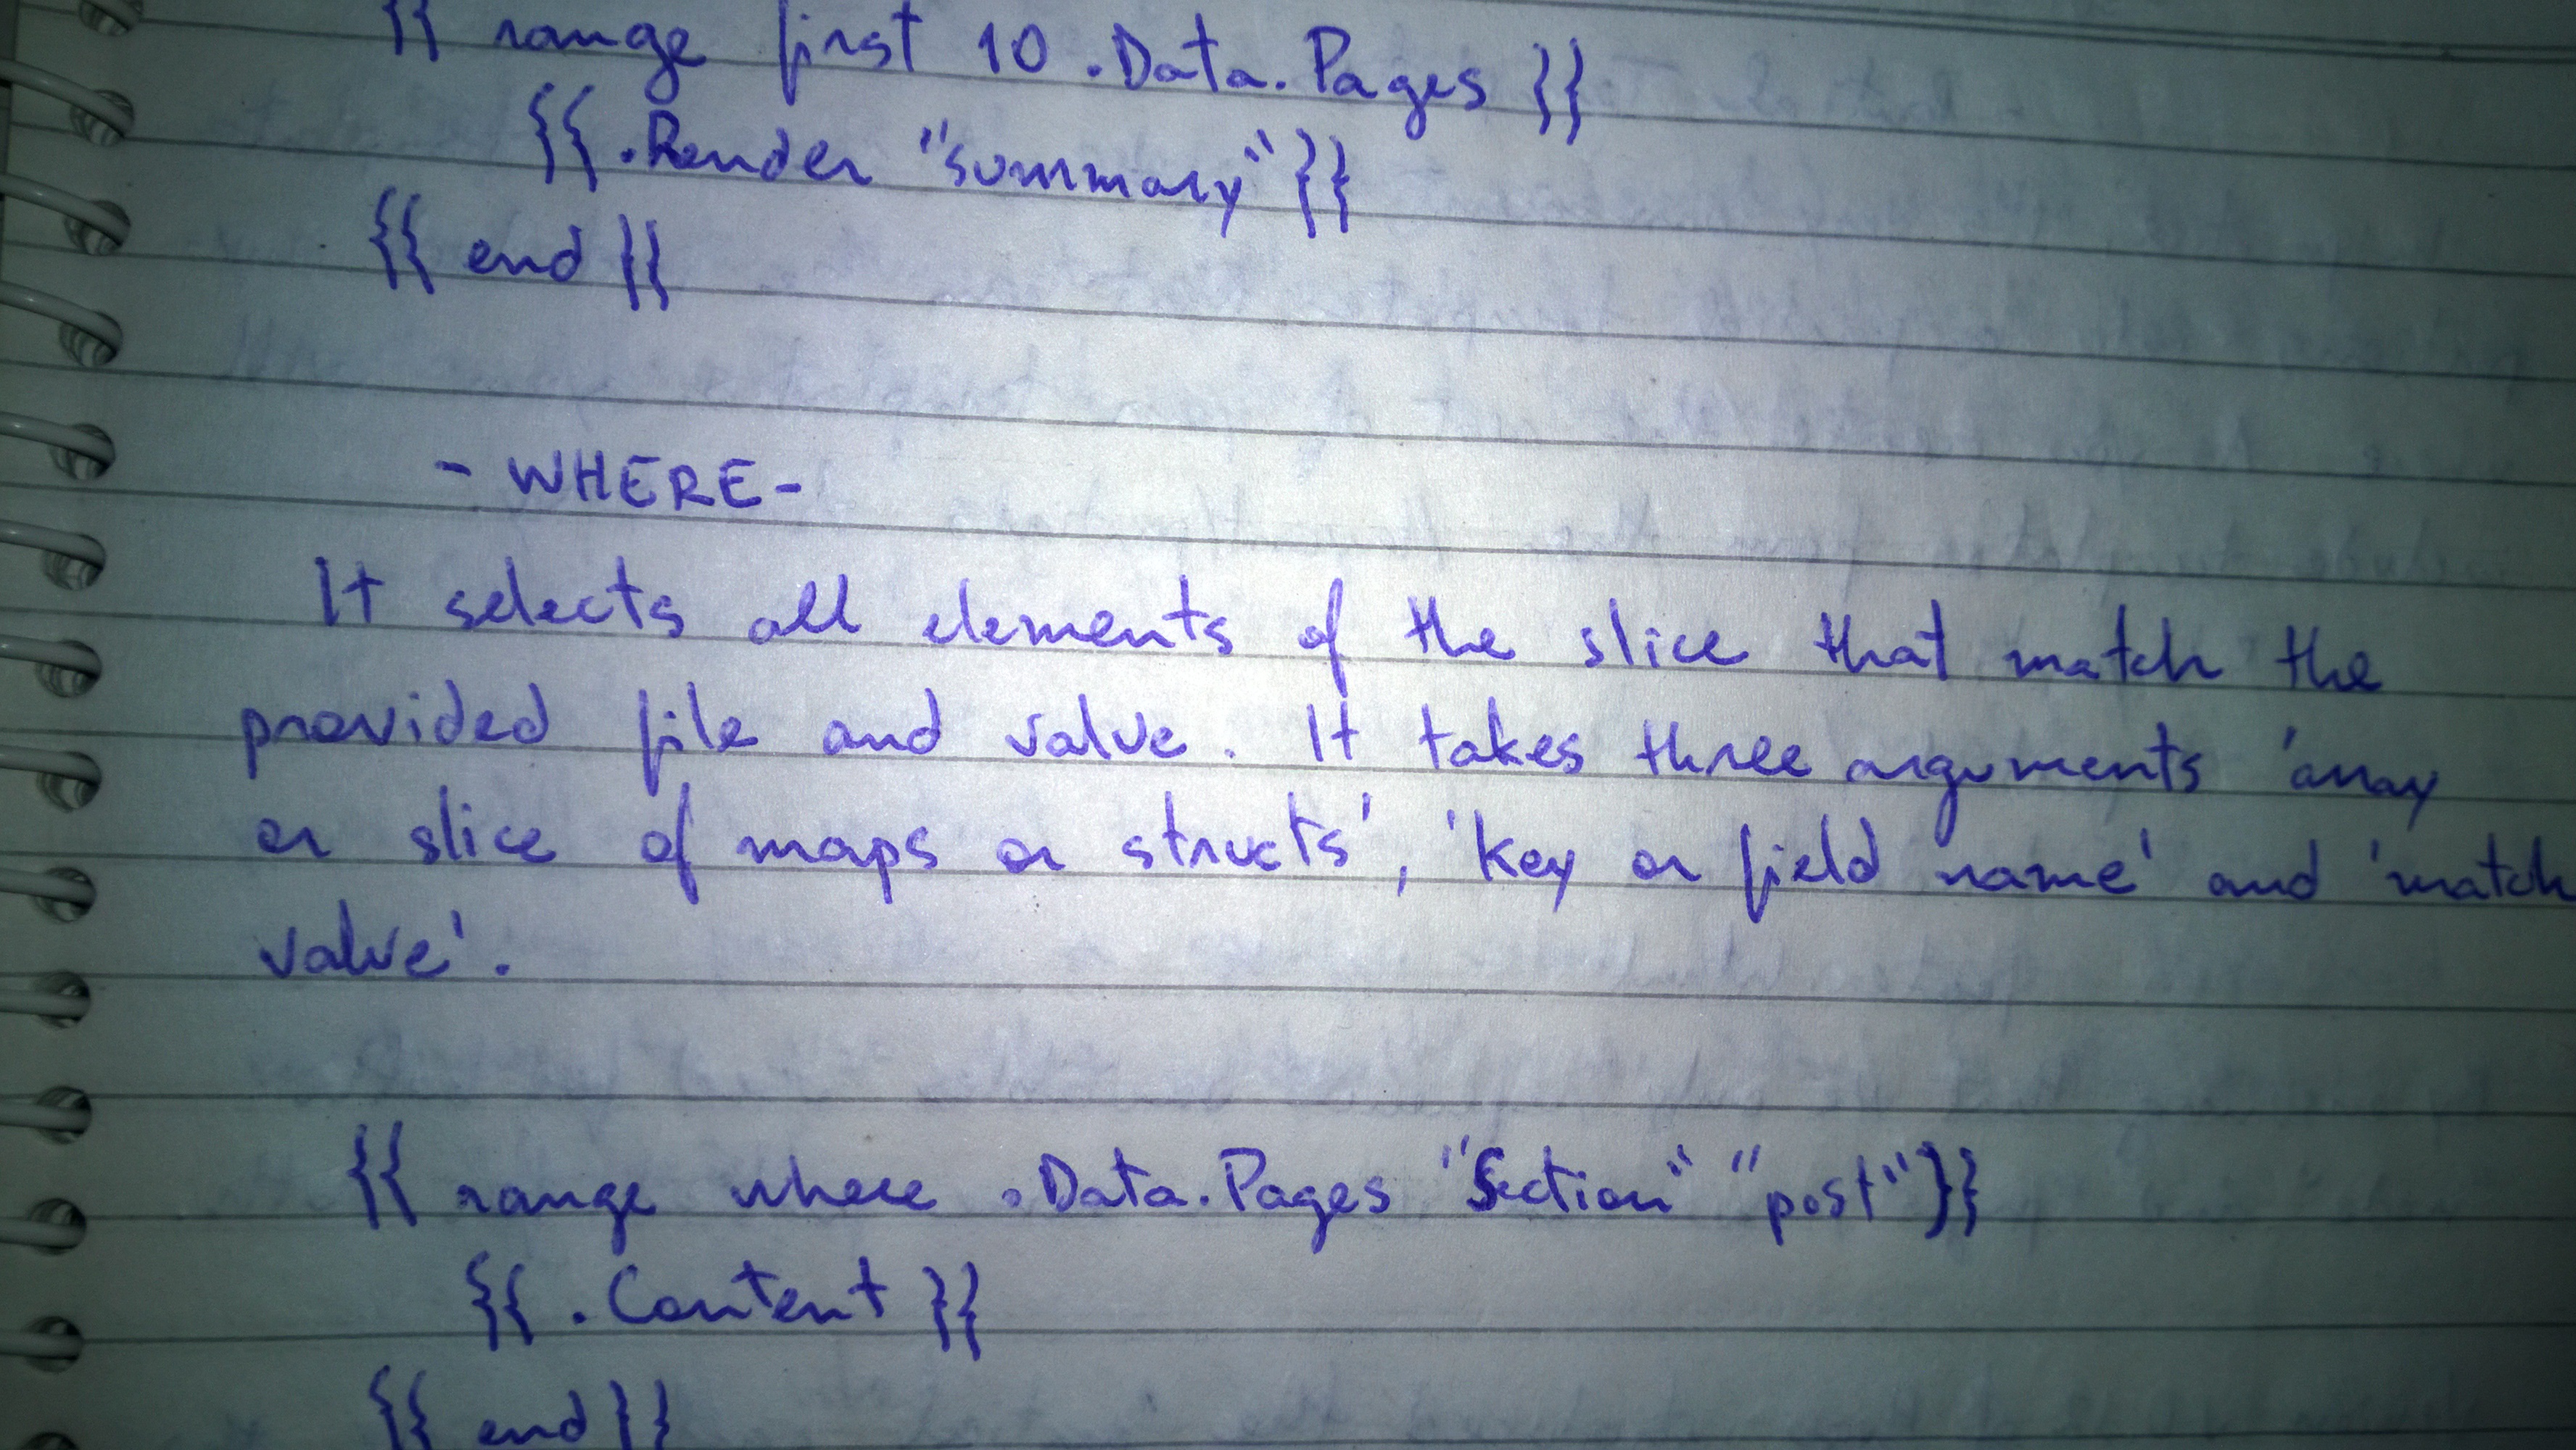 {{ range first 10 .Data.Pages }}
{{ .Render "summary" }}
{{ end }}
- WHERE -
It selects all elements of the slice that match the
provided file and value. It takes three arguments 'array
or slice of maps or structs', 'key or field name' and 'match
value'.
{{ range where .Data.Pages "Section" "post" }}
{{ .Content }}
{{ end }}